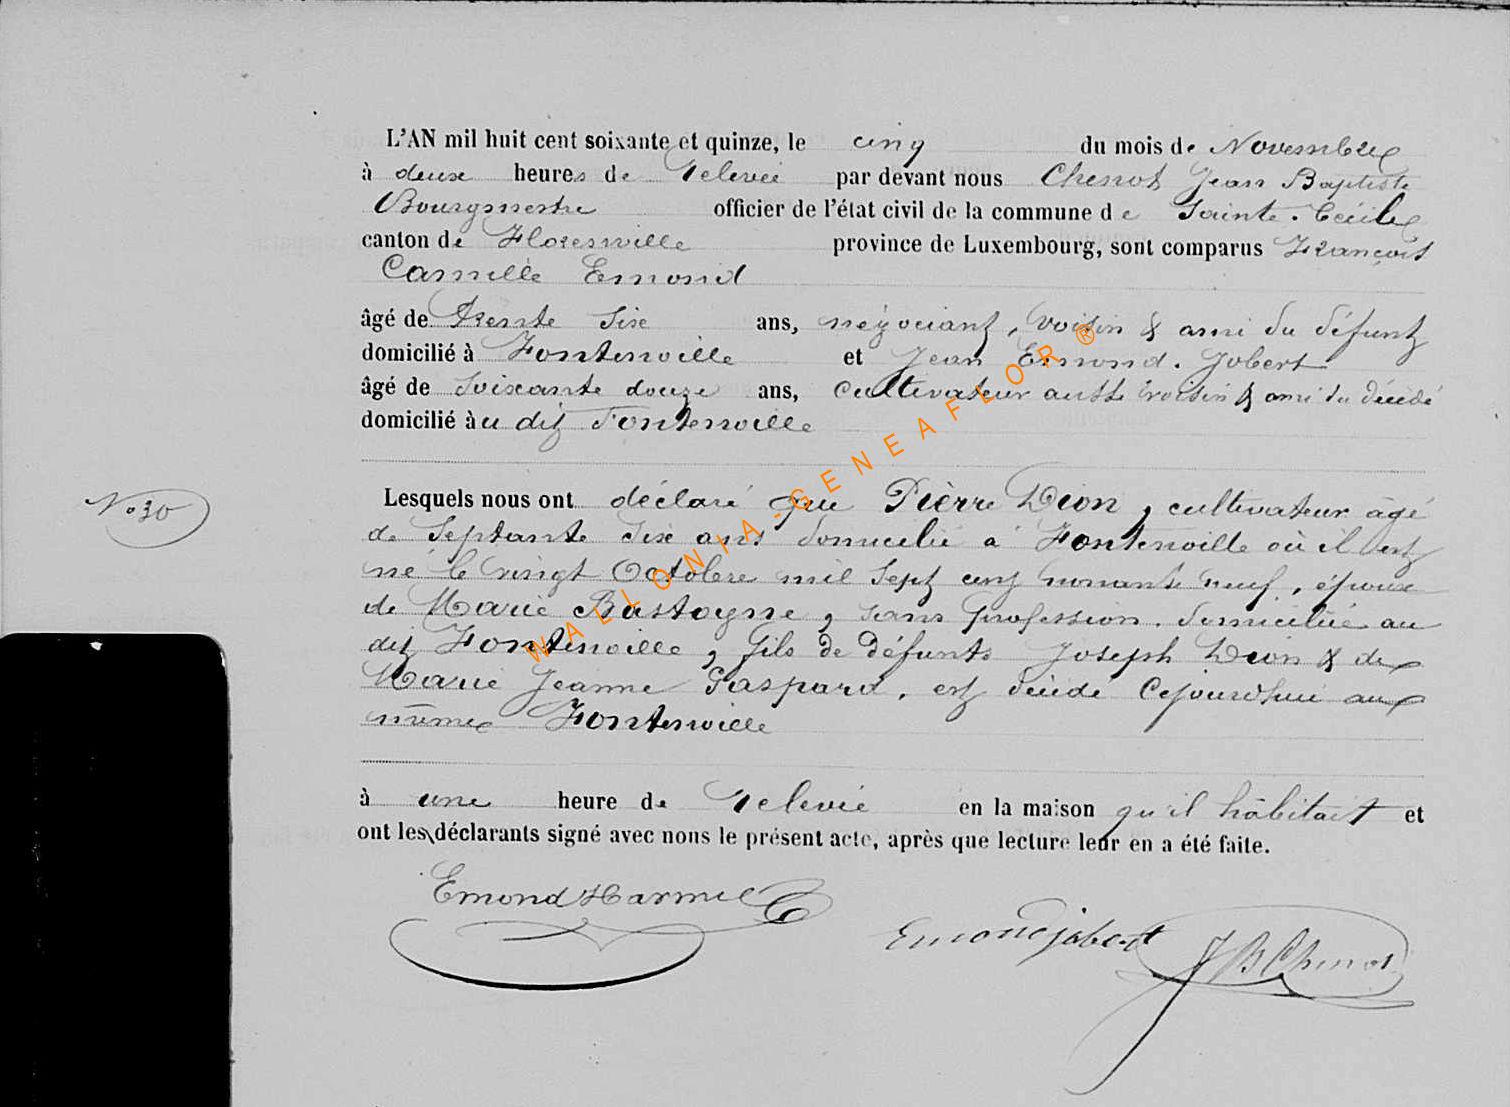 L'AN mil huit cent soixante et quinze, le cinq du mois de Novembre
à deux heures de relevée par devant nous Chenot Jean Baptiste
Bourgmestre officier de l'état civil de la commune de Sainte-Cécile
canton de Florenville province de Luxembourg, sont comparus François
Camille Emond
âgé de trente six ans, négociant, voisin & ami du défunt
domicilié à Fontenoille et Jean Emond-Jobert
âgé de soixante douze ans, cultivateur aussi voisin & ami du décédé
domicilié au dit Fontenoille
Lesquels nous ont déclaré que Pièrre Dion, cultivateur âgé
N° 30
de septante six ans domicilié à Fontenoille où il est
né le vingt Octobre mil sept cent nonante neuf, époux
de Marie Bastogne, sans profession, domiciliée au
dit Fontenoille, fils de défunts Joseph Dion & de
Marie Jeanne Gaspard, est décédé cejourd'hui au
même Fontenoille
à une heure de relevée en la maison qu'il habitait et
ont les déclarants signé avec nous le présent acte, après que lecture leur en a été faite.
Emond Harmel
Emond jobert JB Chenot
WALLONIA-GENEAFLOR ®